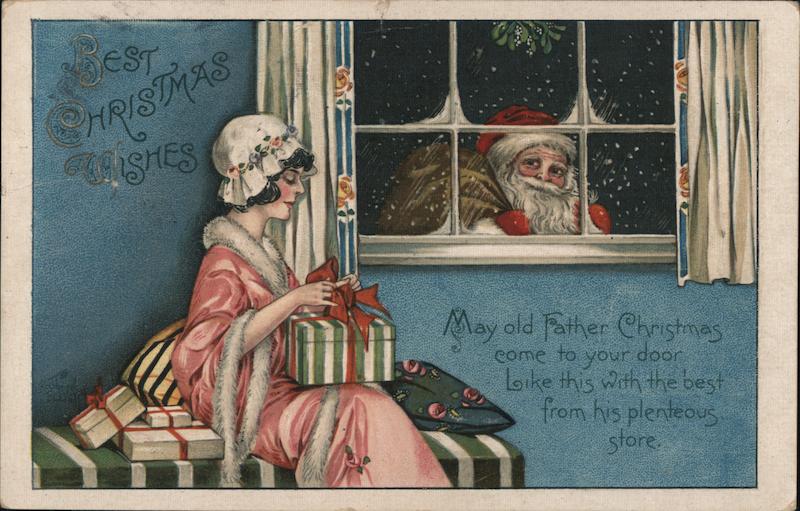 Best
Christmas
Wishes
May old Father Christmas
come to your door
Like this with the best
from his plenteous
store.